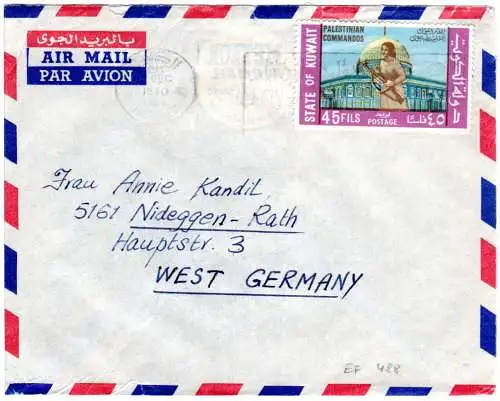 بالبريد الجوى
AIR MAIL
PAR AVION
STATE OF KUWAIT
PALESTINIAN
COMMANDOS
دولة الكويت
45 FILS
POSTAGE
بريد
٤٥ فلسا
Frau Annie Kandil,
5161 Nideggen-Rath
Hauptstr. 3
WEST GERMANY
EF 488